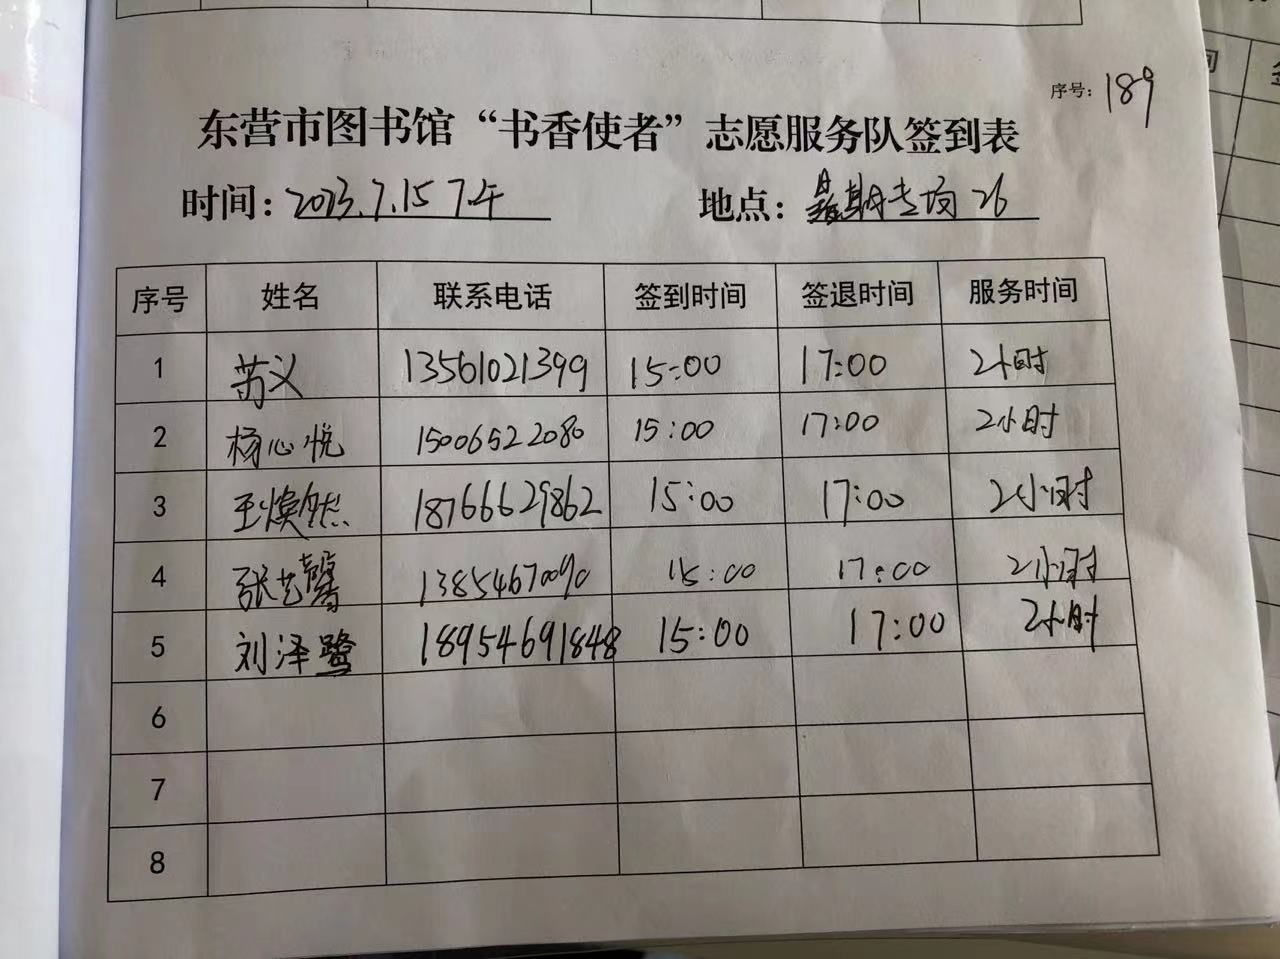 序号：189
东营市图书馆“书香使者”志愿服务队签到表
时间：2023.7.15 下午 地点：暑期专场 26
序号 姓名 联系电话 签到时间 签退时间 服务时间
1 苏义 13561021399 15:00 17:00 2小时
2 杨心悦 15006522080 15:00 17:00 2小时
3 王焕然 18766629862 15:00 17:00 2小时
4 张艺馨 13854670090 15:00 17:00 2小时
5 刘泽鹭 18954691848 15:00 17:00 2小时
6
7
8